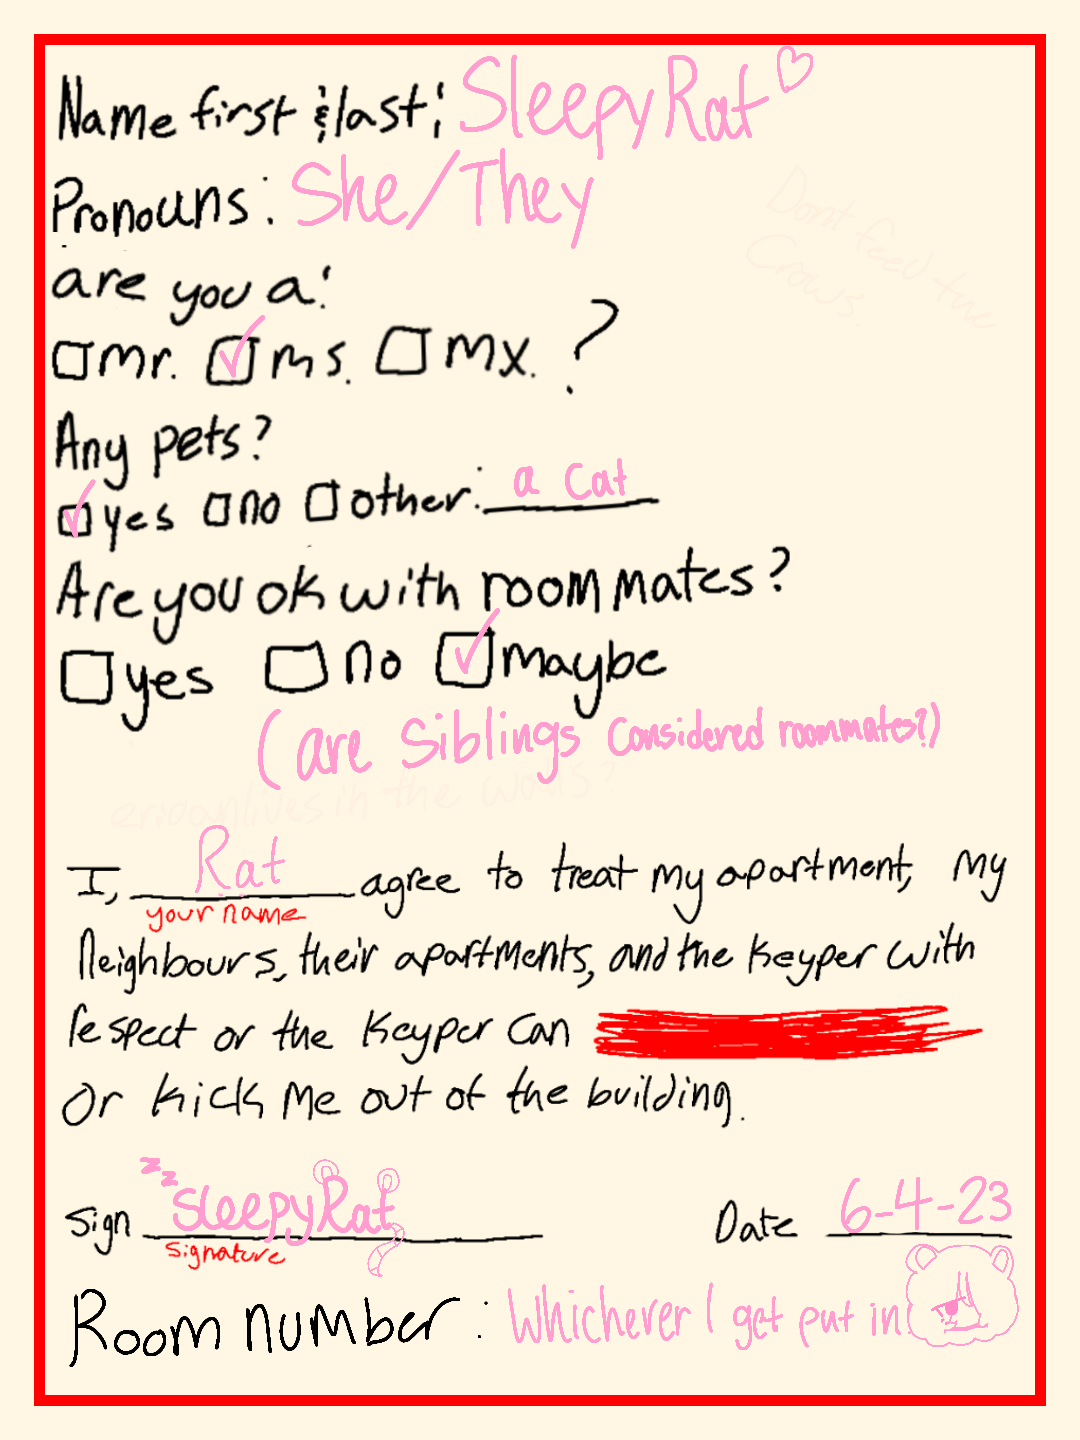 Name first & last: Sleepy Rat
Pronouns: She/They
Dont feed the
Crows.
are you a:
mr. ms. mx. ?
Any pets?
yes no other: a Cat
Are you ok with roommates?
yes no maybe
(are Siblings Considered roommates?)
lives in the walls?
I, Rat agree to treat my apartment, my
your name
Neighbours, their apartments, and the Keyper with
respect or the Keyper Can
Or Kick Me out of the building.
zz
Sign SleepyRat Date 6-4-23
Signature
Room number: Whichever I get put in!